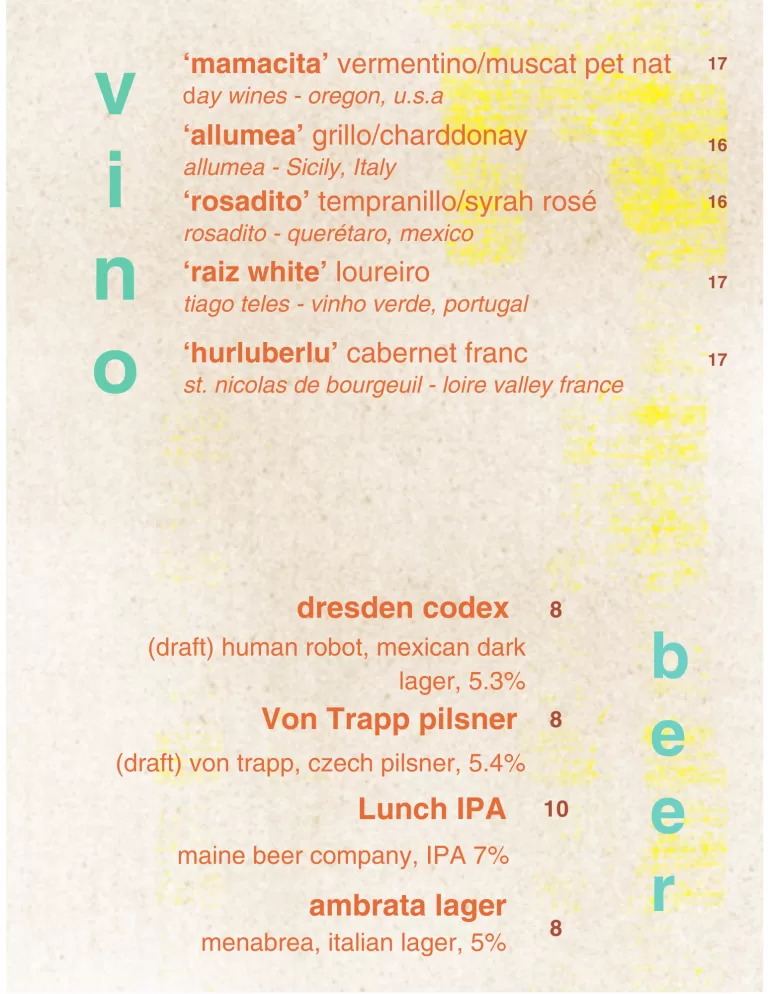 vino
‘mamacita’ vermentino/muscat pet nat 17
day wines - oregon, u.s.a
‘allumea’ grillo/charddonay 16
allumea - Sicily, Italy
‘rosadito’ tempranillo/syrah rosé 16
rosadito - querétaro, mexico
‘raiz white’ loureiro 17
tiago teles - vinho verde, portugal
‘hurluberlu’ cabernet franc 17
st. nicolas de bourgeuil - loire valley france
beer
dresden codex 8
(draft) human robot, mexican dark
lager, 5.3%
Von Trapp pilsner 8
(draft) von trapp, czech pilsner, 5.4%
Lunch IPA 10
maine beer company, IPA 7%
ambrata lager 8
menabrea, italian lager, 5%